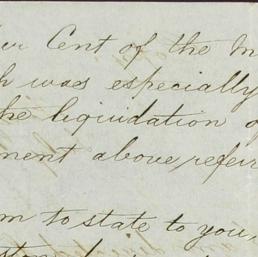 Cent of the
h was especially
the liquidation
ment above refer
m to state to you,